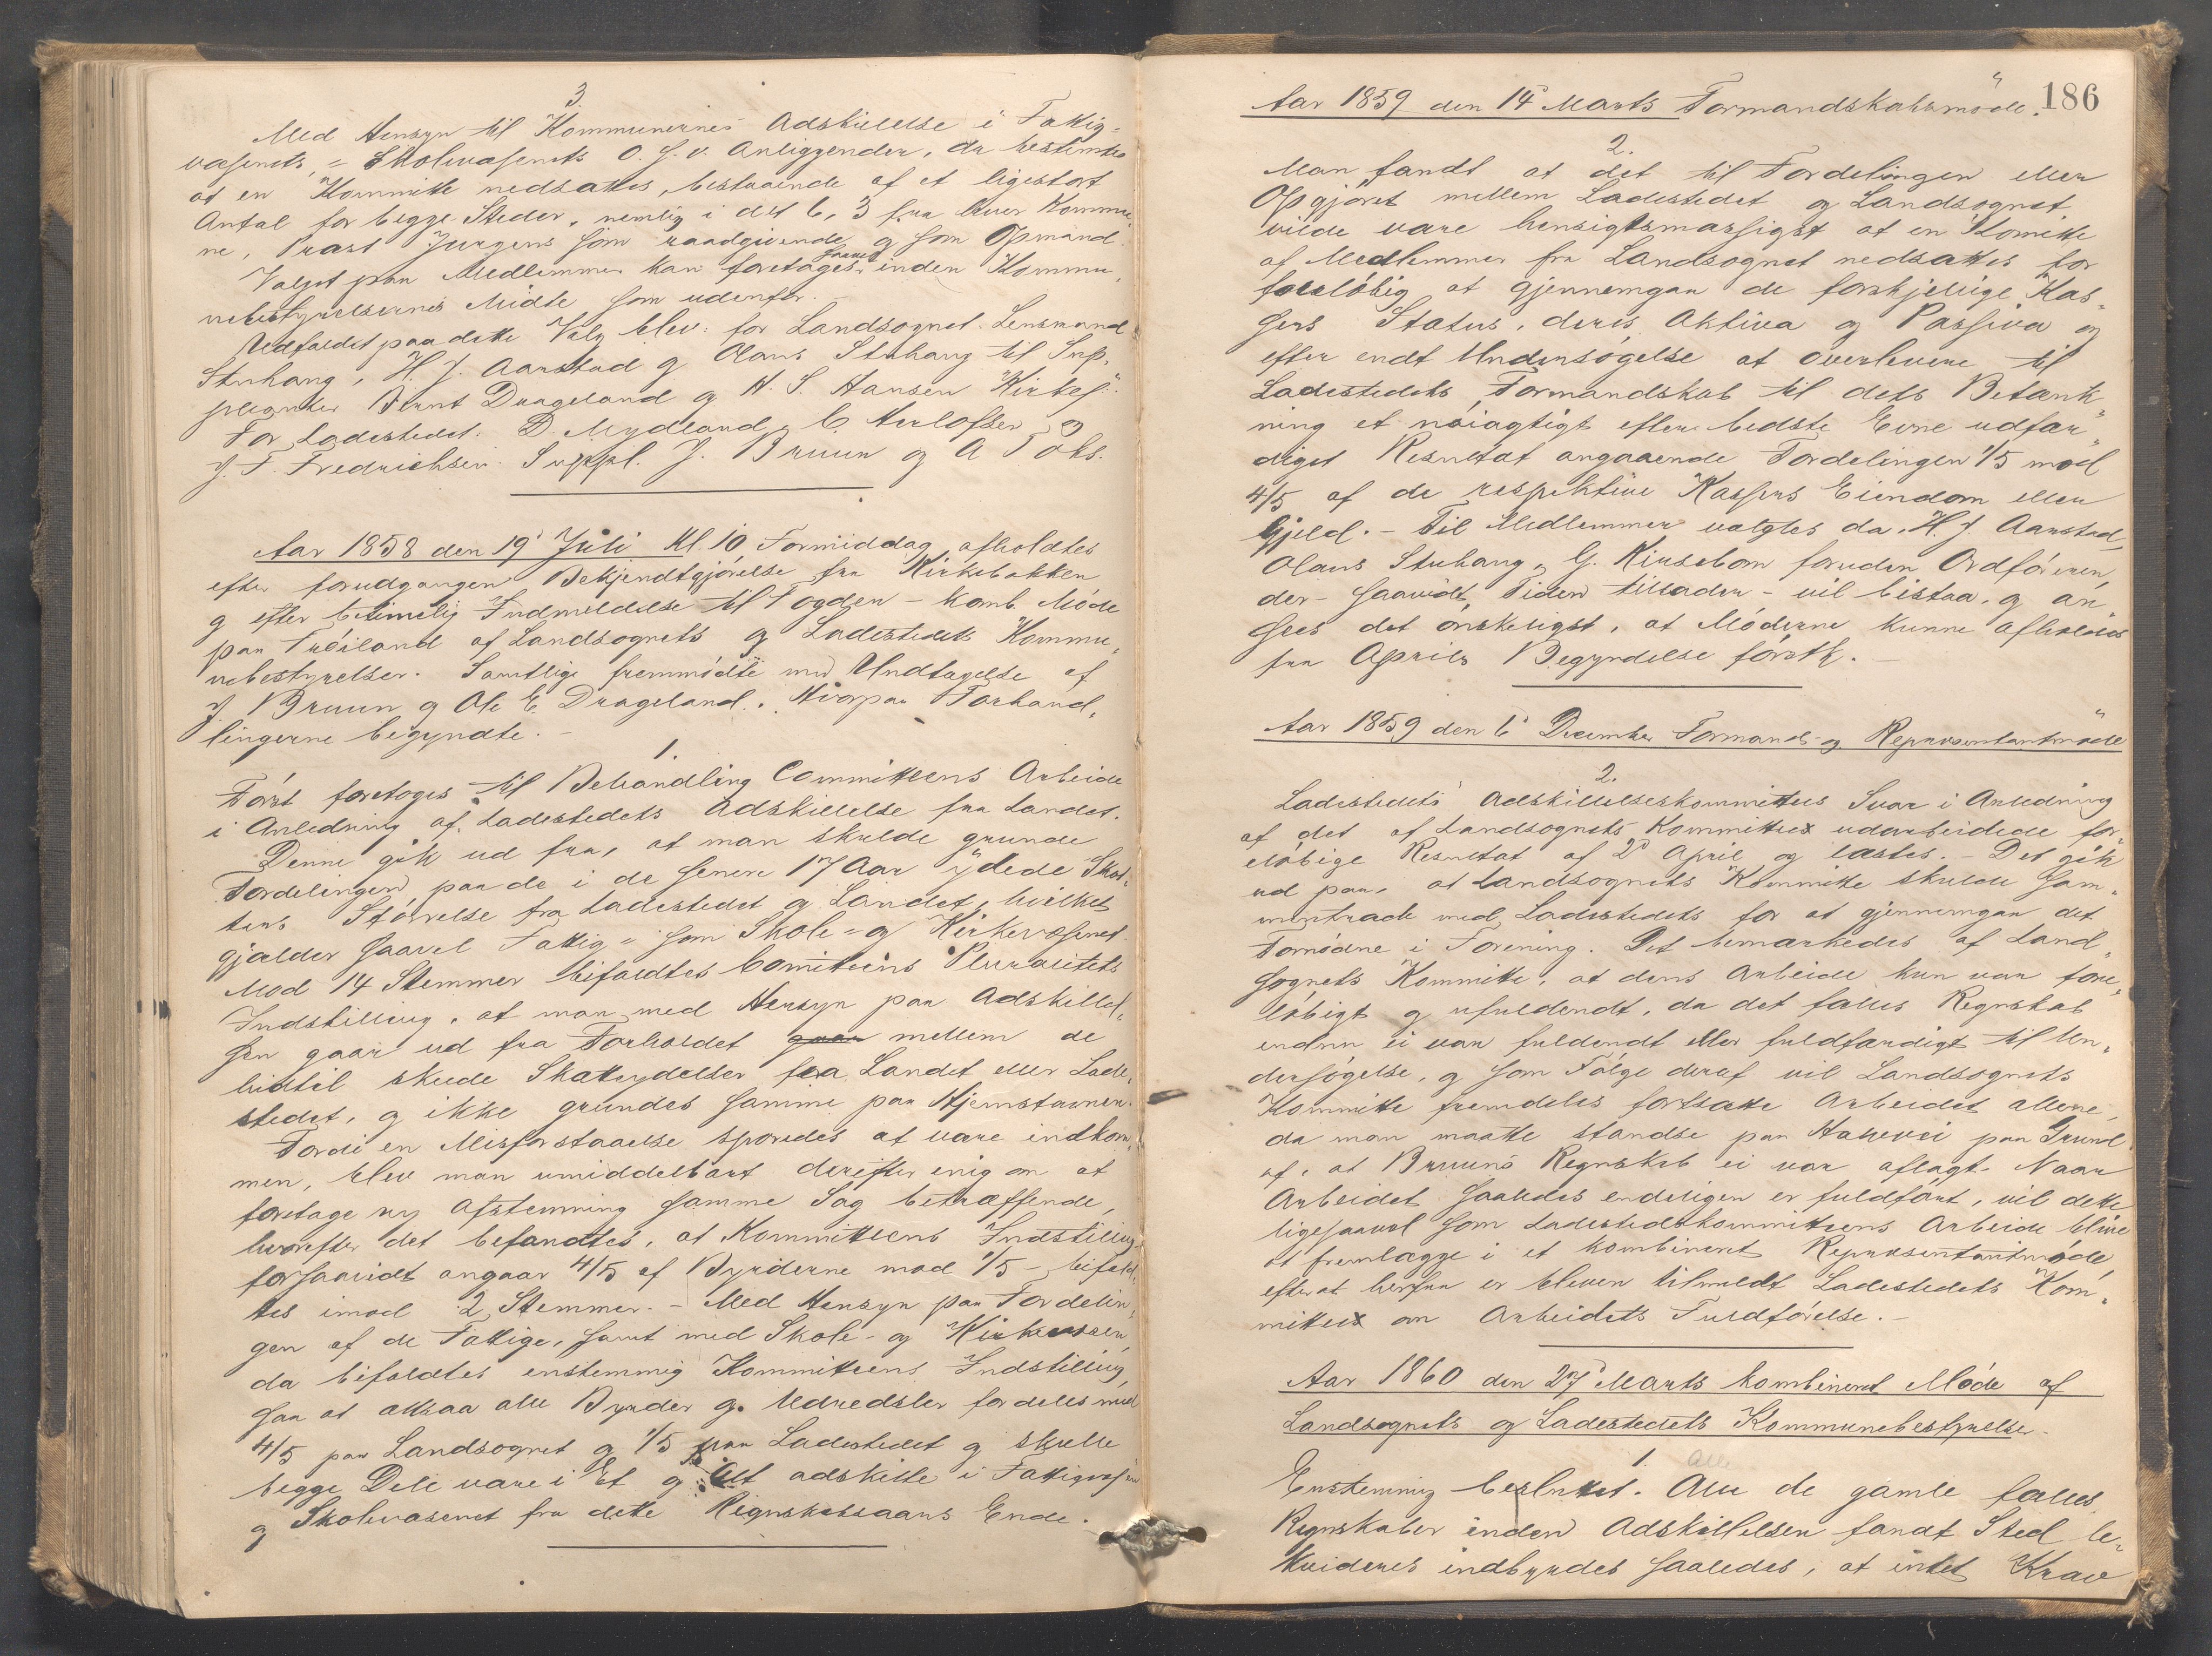 3.
Med Hensyn til Kommunernes Adskillelse i Fattig-
væsenets, = Skolevæsenets o. s. v. Anliggender, da bestemtes
at en Kommitte nedsattes, bestaaende af et ligestort
Antal for begge Steder, nemlig i det 6, 3 fra hver Kommu-
ne, Præst Jurgens som raadgivende og som Opmand.
Valget paa Medlemmer kan foretages saavel inden Kommu-
nebestyrelsernes Midte som udenfor.
Udfaldet paa dette Valg blev: for Landsognet Lensmand
Stuhaug, H. J. Aarstad og Olaus Stuhaug til Sup-
pleanter Bernt Drageland og H. S. Hansen Kirkes:
For Ladestedet. D. Mydland, C. Herlofsen og
J. F. Fredrichsen. Suppl. J. Bruun og A
Aar 1858 den 19d Juli Kl. 10 Formiddag afholdtes
efter forudgangen Bekjendtgjørelse fra Kirkebakken
og efter betimelig Indmeldelse til Fogden - komb. Møde
paa Frøiland af Landsognets og Ladestedets Kommu-
nebestyrelser. Samtlige fremmødte med Undtagelse af
J. Bruun og Ole E. Drageland. Hvorpaa Forhand-
lingerne begyndte. -
1.
Først foretoges til Behandling Committeens Arbeide
i Anledning af Ladestedets Adskillelse fra Landet.
Denne gik ud fra, at man skulde grunde
Fordelingen paa de i de senere 17 Aar ydede Skat-
tens Størrelse fra Ladestedet og Landet, hvilket
gjælder saavel Fattig = som Skole = og Kirkevæsenet.
Mod 14 Stemmer bifaldtes Comiteens Pluralitets
Indstilling, at man med Hensyn paa Adskillel-
sen gaar ud fra Forholdet gaar mellem de
hidtil skede Skatteydelser fra Landet eller Lade-
stedet, og ikke grundes samme paa Hjemstavnen.
Fordi en Misforstaaelse sporedes at være indkom-
men, blev man umiddelbart derefter enig om at
foretage ny Afstemning samme Sag betræffende,
hvorefter det befandtes, at Kommitteens Indstilling
forsaavidt angaar 4/5 af Byrderne mod 1/5 - bifald-
tes imod 2 Stemmer. - Med Hensyn paa Fordelin-
gen af de Fattige, samt med Skole- og Kirkevæsen
da bifaldtes enstemmig Kommitteens Indstilling,
saa at altsaa alle Byrder og Udredsler fordeles med
4/5 paa Landsognet og 1/5 paa Ladestedet og skulle
begge Dele være i Et og Alt adskilte i Fattigvæsen
og Skolevæsenet fra dette Regnskabsaars Ende.
186
Aar 1859 den 14d Marts Formandskabsmøde.
2.
Man fandt at det til Fordelingen eller
Opgjøret mellem Ladestedet og Landsognet
vilde være hensigtsmæssigst at en Komite
af Medlemmer fra Landsognet nedsattes for
foreløbig at gjennemgaa de forskjellige Kas-
sers Status, deres Aktiva og Passiva og
efter endt Undersøgelse at overlevere til
Ladestedets Formandskab til dets Betænk-
ning et nøiagtigt efter bedste Evne udfær-
diget Resultat angaaende Fordelingen 1/5 mod
4/5 af de respektive Kassers Eiendom eller
Gjeld. - Til Medlemmer valgtes da, H. J. Aarstad,
Olaus Stuhaug, G. Kirsebom foruden Ordføreren,
der - saavidt Tiden tillader - vil bistaa, og an-
sees det ønskeligst, at Møderne kunne afholdes
fra Aprils Begyndelse førstk. -
Aar 1859 den 6d December Formands- og Repræsentantmøde
2.
Ladestedets Adskillelseskommittees Svar i Anledning
af det af Landsognets Kommittee udarbeidede for-
eløbige Resultat af 2d April og læstes. - Det gik
ud paa, at Landsognets Kommitte skulde sam-
mentræde med Ladestedets for at gjennemgaa det
Fornødne i Forening. Det bemærkedes af Land-
sognets Kommitte, at dens Arbeide kun var fore-
løbigt og ufuldendt, da det fælles Regnskab
endnu ei var fuldendt eller fuldfærdigt til Un-
dersøgelse, og som Følge deraf vil Landsognets
Kommitte fremdeles fortsætte Arbeidet allene,
da man maatte standse paa Halvvei paa Grund
af, at Bruuns Regnskab ei var aflagt. Naar
Arbeidet saaledes endeligen er fuldført, vil dette
ligesaavel som Ladestedskommitteens Arbeide blive
at fremlægge i et kombineret Repræsentantmøde,
efterat herfra er bleven tilmeldt Ladestedets Kom-
mittee om Arbeidets Fuldførelse. -
Aar 1860 den 27d Marts kombineret Møde af
Landsognets og Ladestedets Kommunebestyrelse.
1. Alle
Enstemmig besluttet. Alle de gamle fælles
Regnskaber inden Adskillelsen fandt Sted le-
kvideres indbyrdes saaledes, at intet Krav